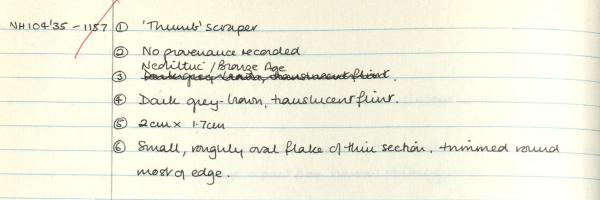 NH104'35 - 1157 ① 'Thumb' scraper
② No provenance recorded
Neolithic / Bronze Age
③ Dark grey-brown, translucent flint.
④ Dark grey-brown, translucent flint.
⑤ 2cm x 1.7cm
⑥ Small, roughly oval flake of thin section, trimmed round
most of edge.